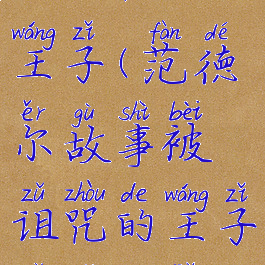 wáng zǐ fàn dé
王子(范德
ěr gù shì bèi
尔故事被
zǔ zhòu de wáng zǐ
诅咒的王子